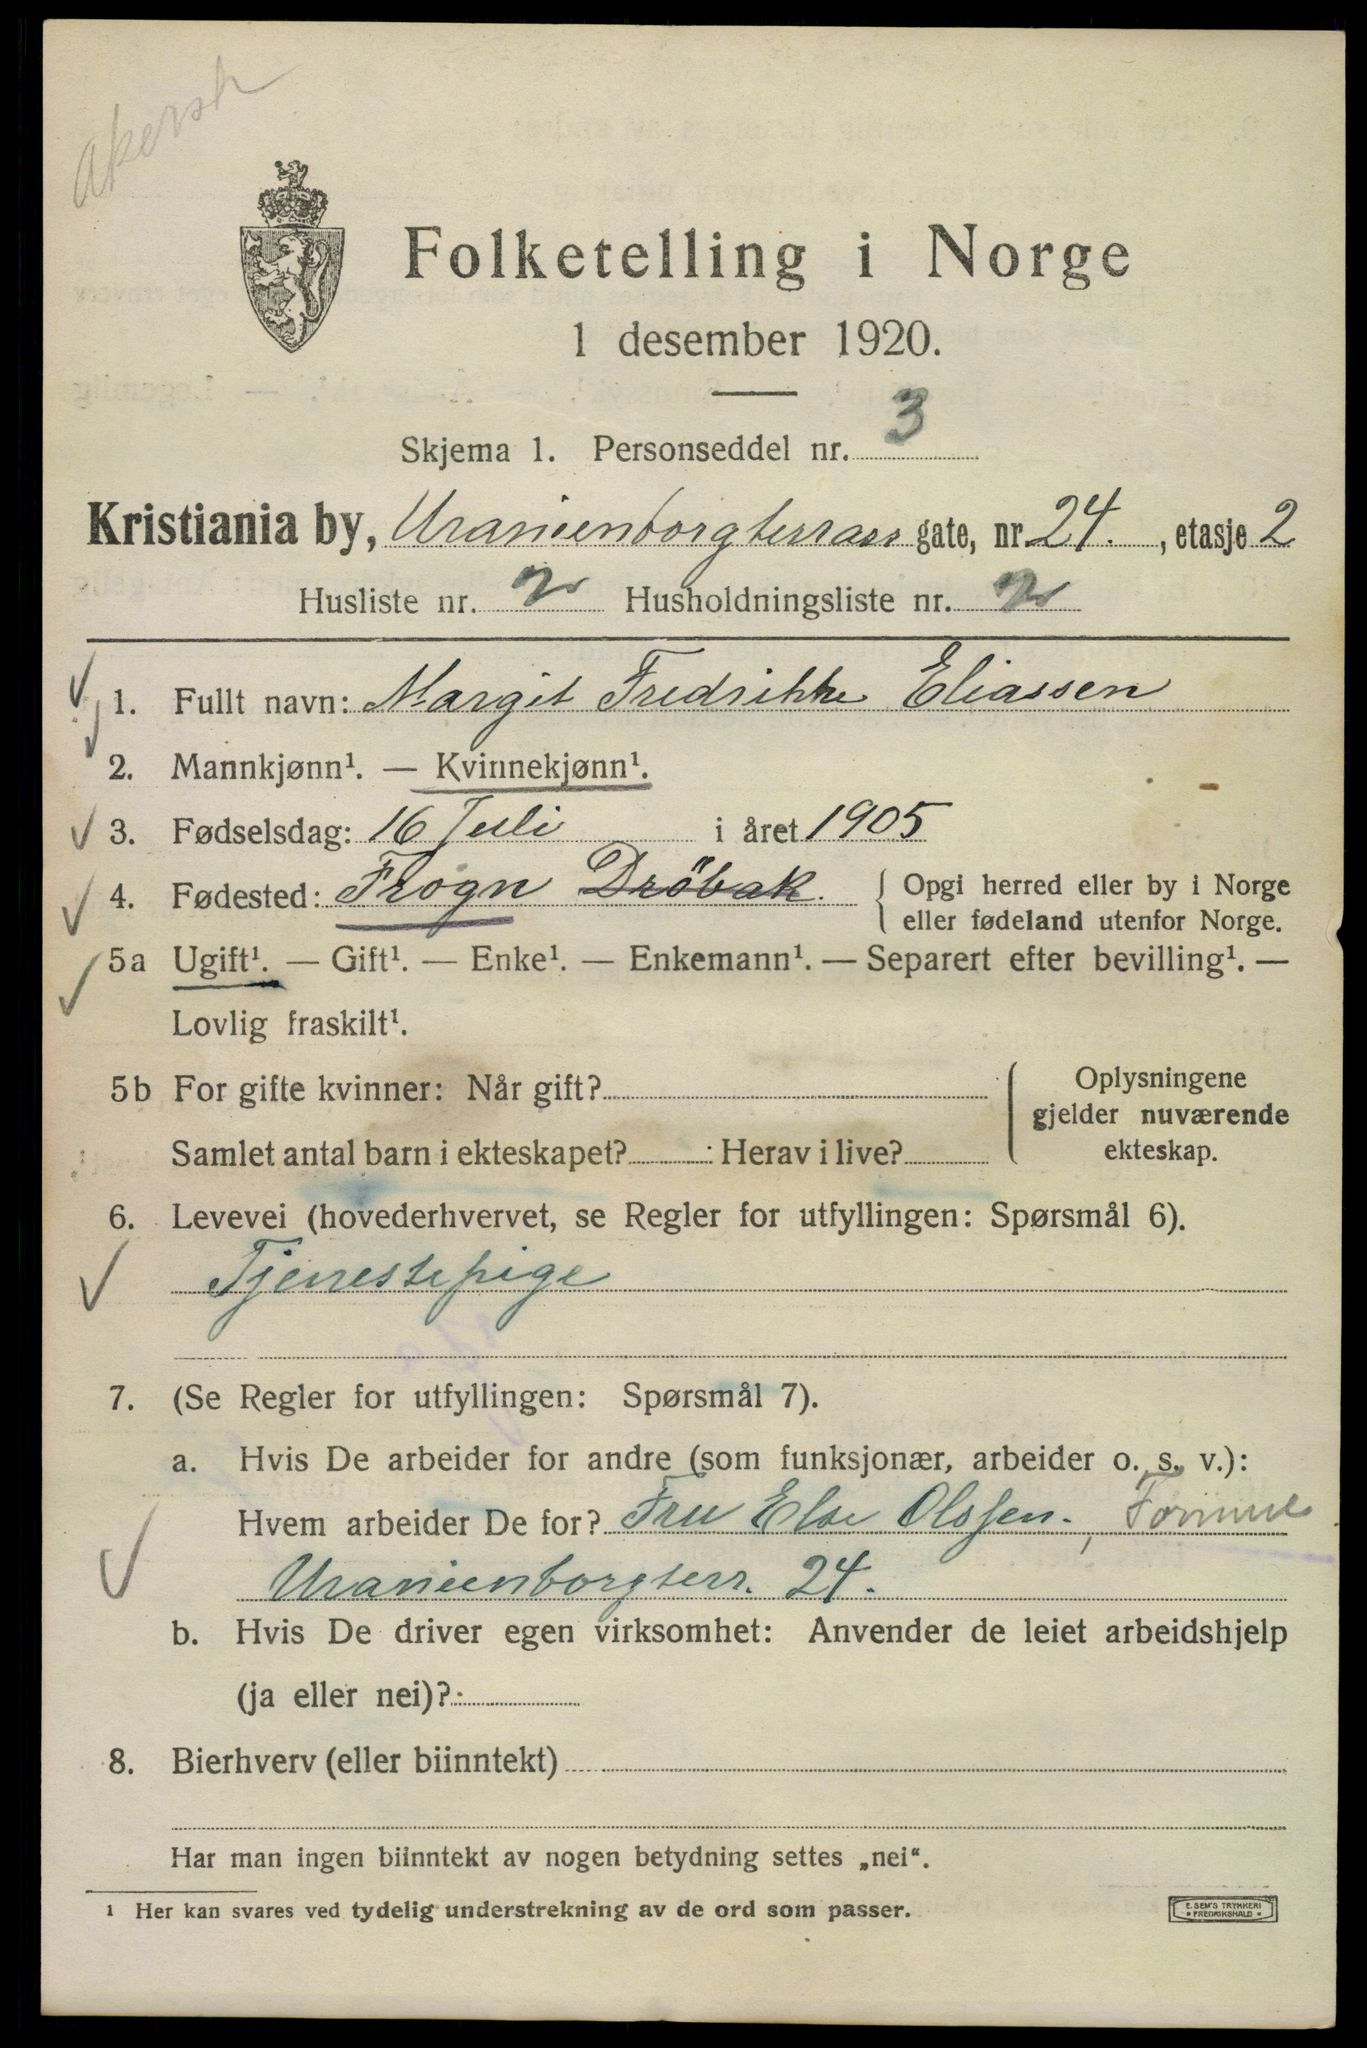 Akersh
Folketelling i Norge
1 desember 1920.
Skjema 1. Personseddel nr. 3
Kristiania by, Uranienborgterrass gate, nr 24. , etasje 2
Husliste nr. 2 Husholdningsliste nr. 2
1. Fullt navn: Margit Fredrikke Eliassen
2. Mannkjønn¹. — Kvinnekjønn¹.
3. Fødselsdag: 16 Juli i året 1905
4. Fødested: Frogn Dröbak. { Opgi herred eller by i Norge
eller fødeland utenfor Norge.
5a Ugift¹. — Gift¹. — Enke¹. — Enkemann¹. — Separert efter bevilling¹. —
Lovlig fraskilt¹.
5b For gifte kvinner: Når gift?
Samlet antal barn i ekteskapet? : Herav i live?
Oplysningene
gjelder nuværende
ekteskap.
6. Levevei (hovederhvervet, se Regler for utfyllingen: Spørsmål 6).
Tjenestepige
7. (Se Regler for utfyllingen: Spørsmål 7).
a. Hvis De arbeider for andre (som funksjonær, arbeider o. s. v.):
Hvem arbeider De for? Fru Else Olssen.,
Uranienborgterr. 24.
b. Hvis De driver egen virksomhet: Anvender de leiet arbeidshjelp
(ja eller nei)?
8. Bierhverv (eller biinntekt)
Har man ingen biinntekt av nogen betydning settes „nei“.
1 Her kan svares ved tydelig understrekning av de ord som passer.
E. SEM'S TRYKKERI
* FREDRIKSHALD *